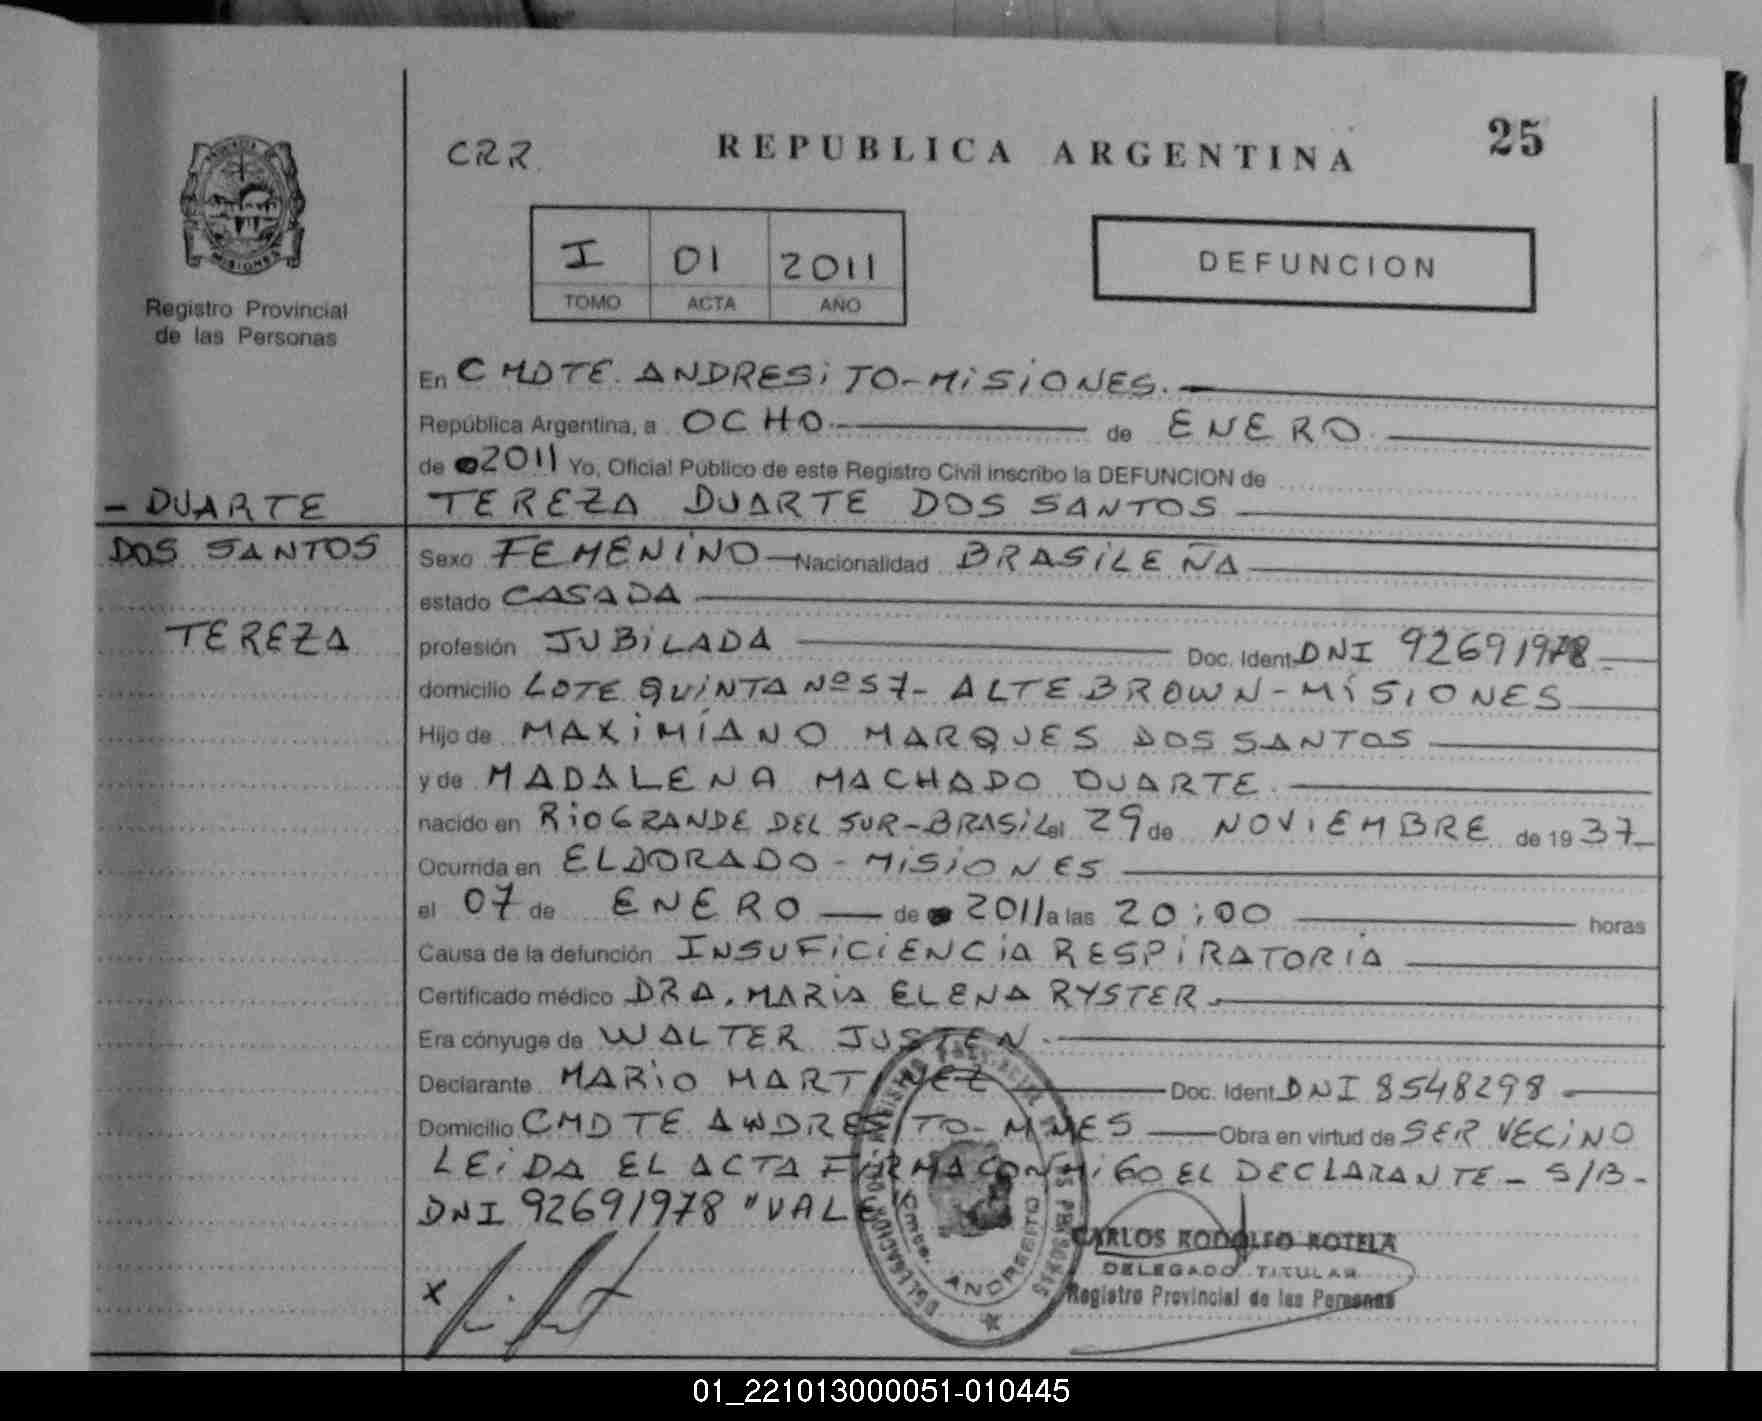 CRR
REPUBLICA ARGENTINA
25
PROVINCIA DE
MISIONES
Registro Provincial
de las Personas
I 01 2011
TOMO ACTA AÑO
DEFUNCION
En CMDTE. ANDRESiTO-MiSiONES.
República Argentina, a OCHO de ENERO
de 2011 Yo, Oficial Público de este Registro Civil inscribo la DEFUNCION de
- DUARTE
TEREZA DUARTE DOS SANTOS
DOS SANTOS
Sexo FEMENiNO Nacionalidad BRASiLEÑA
estado CASADA
TEREZA
profesión JUBiLADA Doc. Ident. DNI 92691978
domicilio LOTE QUiNTA Nº 57- ALTE BROWN-MiSiONES
Hijo de MAXiMiANO MARQUES DOS SANTOS
y de MADALENA MACHADO DUARTE
nacido en RiO GRANDE DEL SUR-BRASiL el 29 de NOViEMBRE de 1937-
Ocurrida en ELDORADO - MiSiONES
el 07 de ENERO de 2011 a las 20:00 horas
Causa de la defunción INSUFiCiENCiA RESPiRATORiA
Certificado médico DRA. MARiA ELENA RYSTER
Era cónyuge de WALTER JUSTEN.
Declarante MARiO MARTiNEZ Doc. Ident. DNI 8548298
Domicilio CMDTE ANDRESiTO- MNES Obra en virtud de SER VECiNO
LEiDA EL ACTA FiRMA CONMiGO EL DECLARANTE - S/B-
DNI 92691978 "VALE
x
Cmte. ANDRESITO
CARLOS RODOLFO ROTELA
DELEGADO TITULAR
Registro Provincial de las Personas
01_221013000051-010445